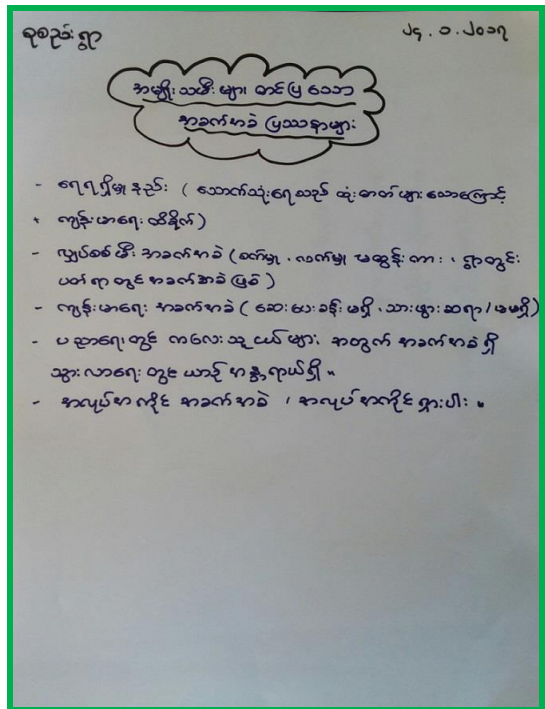 စုစည်းရွာ
၂၄.၁.၂၀၁၇
အမျိုးသမီးများ တင်ပြသော
အခက်အခဲ ပြဿနာများ
- ရေရရှိမှုနည်း (သောက်သုံးရေသည် ထုံးဓာတ်များသောကြောင့်
ကျန်းမာရေး ထိခိုက်)
- လျှပ်စစ်မီး အခက်အခဲ (စက်မှု၊ လက်မှု မထွန်းကား၊ ရွာတွင်း
ပတ်ရာတွင် အခက်အခဲဖြစ်)
- ကျန်းမာရေး အခက်အခဲ (ဆေးပေးခန်းမရှိ၊ သားဖွားဆရာ/မမရှိ)
- ပညာရေးတွင် ကလေးသူငယ်များ အတွက် အခက်အခဲရှိ
သွားလာရေးတွင် ယာဉ်အန္တရာယ်ရှိ။
- အလုပ်အကိုင် အခက်အခဲ၊ အလုပ်အကိုင်ရှားပါး။